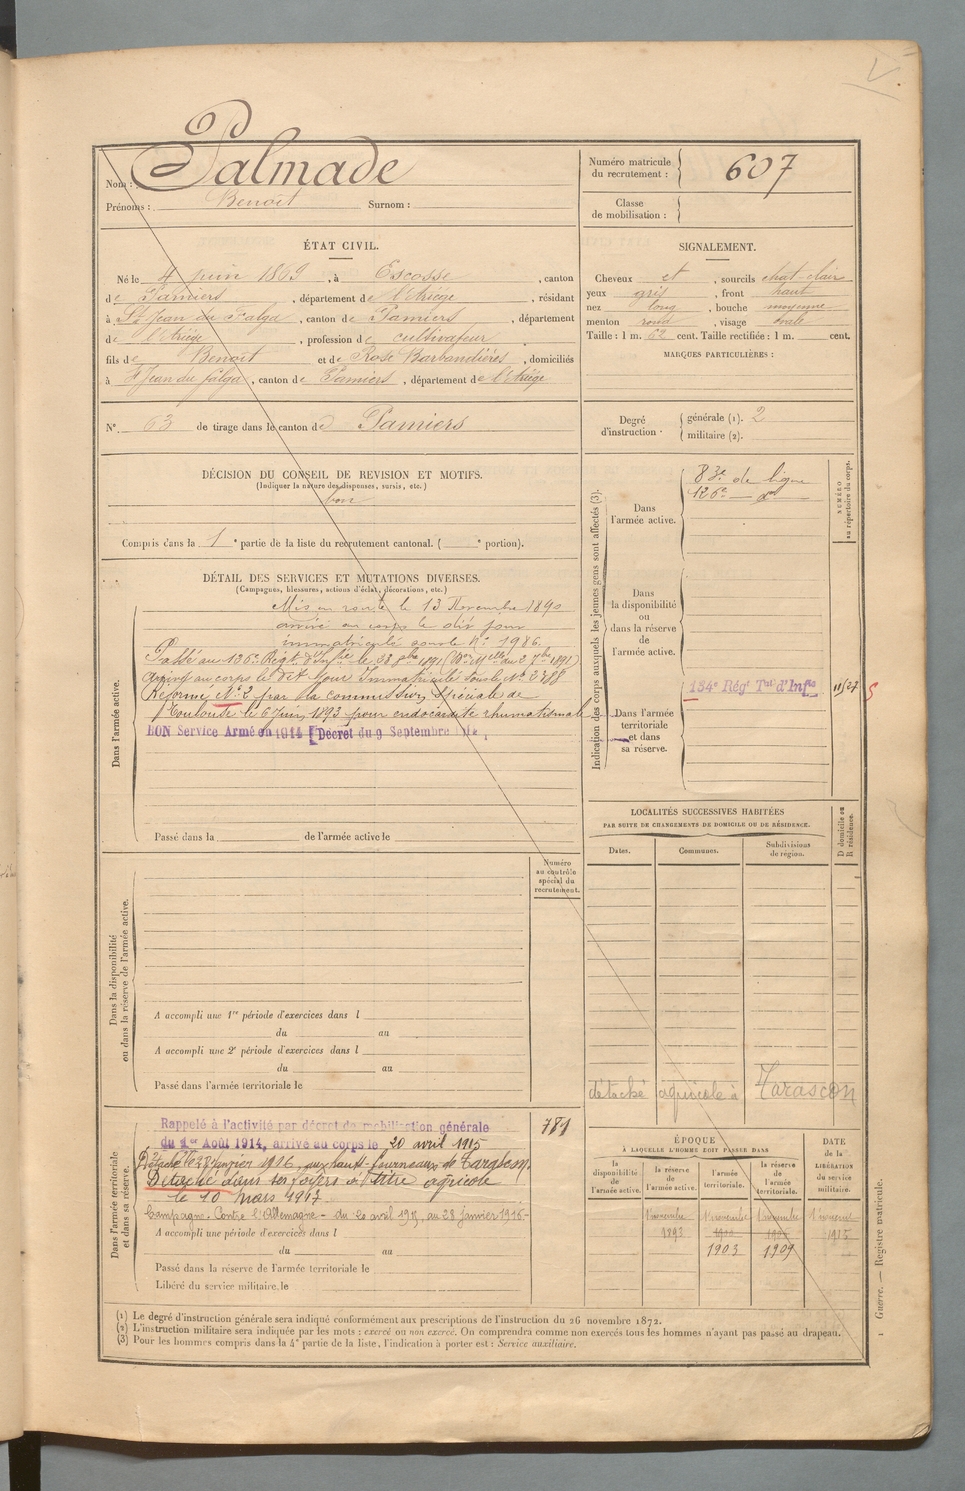 Nom : Palmade
Prénoms : Benoit Surnom :
Numéro matricule du recrutement : 607
Classe de mobilisation :
ÉTAT CIVIL.
Né le 4 juin 1869, à Escosse, canton
de Pamiers, département de l'Ariège, résidant
à St Jean du Falga, canton de Pamiers, département
de l'Ariège, profession de cultivateur
fils de Benoit et de Rose Barbandières, domiciliés
à St Jean du falga, canton de Pamiers, département de l'Ariège
SIGNALEMENT.
Cheveux et , sourcils chat-clair
yeux gris , front haut
nez long , bouche moyenne
menton rond , visage ovale
Taille : 1 m. 62 cent. Taille rectifiée : 1 m. cent.
MARQUES PARTICULIÈRES :
N° 63 de tirage dans le canton de Pamiers
Degré d'instruction · générale (1). 2
militaire (2).
DÉCISION DU CONSEIL DE REVISION ET MOTIFS.
(Indiquer la nature des dispenses, sursis, etc.)
bon
Compris dans la 1e partie de la liste du recrutement cantonal. ( e portion).
DÉTAIL DES SERVICES ET MUTATIONS DIVERSES.
(Campagnes, blessures, actions d'éclat, décorations, etc.)
Dans l'armée active.
Mis en route le 13 Novembre 1890
arrivé au corps le dit jour
immatriculé sous le N° 1986.
Passé au 126e Régt d'Infie le 28 8bre 1891
arrivé au corps le dit jour Immatriculé sous le N° 2788
Réformé N° 2 par la commission spéciale de
Toulouse le 6 juin 1893 pour endocardite rhumatismale
BON Service Armé en 1914 [Décret du 9 Septembre 1914
Passé dans la de l'armée active le
Indication des corps auxquels les jeunes gens sont affectés (3).
NUMÉRO au répertoire du corps.
Dans l'armée active.
83e de ligne
126e — do —
Dans la disponibilité ou dans la réserve de l'armée active.
Dans l'armée territoriale et dans sa réserve.
134e Régt Tal d'Infie 11/27 5
LOCALITÉS SUCCESSIVES HABITÉES
PAR SUITE DE CHANGEMENTS DE DOMICILE OU DE RÉSIDENCE.
Dates. Communes. Subdivisions de région. D domicile ou R résidence.
détaché agricole à Tarascon
Dans la disponibilité ou dans la réserve de l'armée active.
Numéro au contrôle spécial du recrutement.
A accompli une 1re période d'exercices dans l
du au
A accompli une 2e période d'exercices dans l
du au
Passé dans l'armée territoriale le
Dans l'armée territoriale et dans sa réserve.
781
Rappelé à l'activité par décret de mobilisation générale
du 1er Août 1914, arrivé au corps le 20 avril 1915
Détaché le 28 janvier 1916 aux hauts-fourneaux de Tarascon.
Détaché dans ses foyers à titre agricole
le 10 mars 1917
Campagne Contre l'Allemagne - du 20 avril 1915, au 28 janvier 1916 -
A accompli une période d'exercices dans l
du au
Passé dans la réserve de l'armée territoriale le
Libéré du service militaire, le
ÉPOQUE
À LAQUELLE L'HOMME DOIT PASSER DANS
la disponibilité de l'armée active. la réserve de l'armée active. l'armée territoriale. la réserve de l'armée territoriale.
DATE de la LIBÉRATION du service militaire.
1 novembre 1893
1 novembre 1900 1903
1 novembre 1909
1 novembre 1915
(1) Le degré d'instruction générale sera indiqué conformément aux prescriptions de l'instruction du 26 novembre 1872.
(2) L'instruction militaire sera indiquée par les mots : exercé ou non exercé. On comprendra comme non exercés tous les hommes n'ayant pas passé au drapeau.
(3) Pour les hommes compris dans la 4e partie de la liste, l'indication à porter est : Service auxiliaire.
1 Guerre. — Registre matricule.